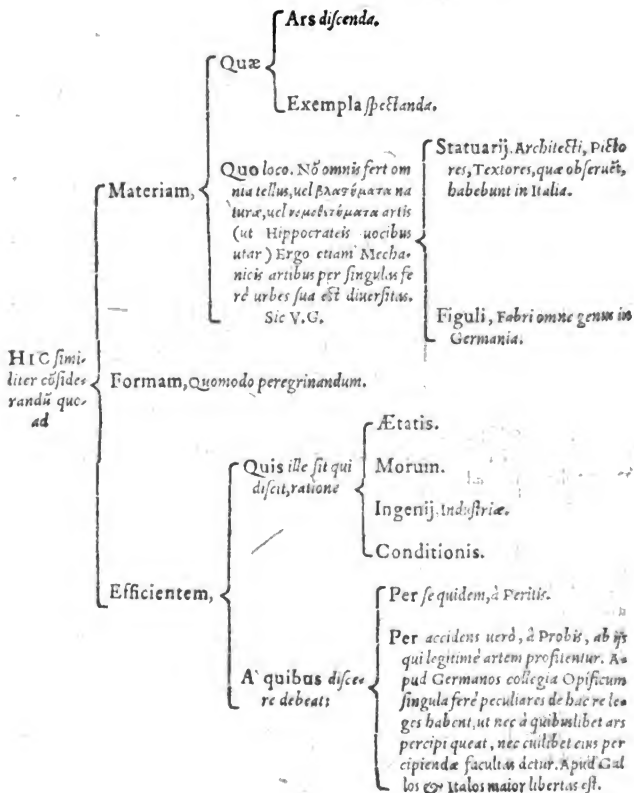 Ars discenda.
Quæ
Exempla spectanda.
Materiam,
Quo loco. Nõ omnis fert om
nia tellus, uel βλαστήματα na
turæ, uel
artis
(ut Hippocrateis uocibus
utar) Ergo etiam Mecha-
nicis artibus per singulas fe
rè urbes sua est diuersitas.
Sic V.G.
Statuarij. Architecti, Picto
res, Textores, quæ obseruẽt,
habebunt in Italia.
Figuli, Fabri omne genus in
Germania.
HIC simi-
liter cõside-
randũ quo-
ad
Formam, Quomodo peregrinandum.
Efficientem,
Quis ille sit qui
discit, ratione
Ætatis.
Morum.
Ingenij. Industriæ.
Conditionis.
A' quibus disce-
re debeat:
Per se quidem, à Peritis.
Per accidens uerò, à Probis, ab ijs
qui legitimè artem profitentur. A-
pud Germanos collegia Opificum
singula ferè peculiares de hac re le-
ges habent, ut nec à quibuslibet ars
percipi queat, nec cuilibet eius per
cipiendæ facultas detur. Apud Gal
los & Italos maior libertas est.